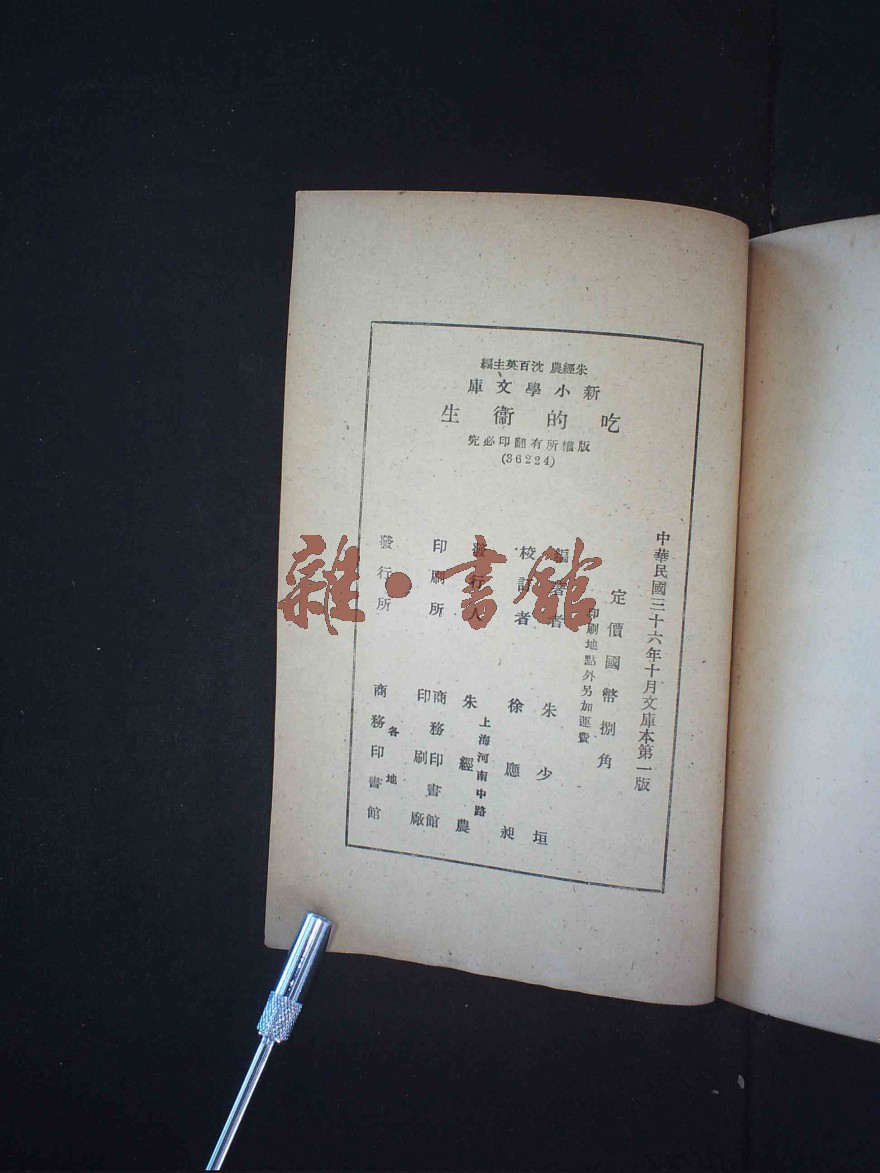 朱經農 沈百英主編
新小學文庫
吃的衞生
版權所有翻印必究
(36224)
中華民國三十六年十月文庫本第一版
定價國幣捌角
印刷地點外另加運費
編著者 朱少垣
校訂者 徐應昶
發行人 朱經農
上海河南中路
印刷所 商務印書館印刷廠
發行所 商務印書館
各地
雜·書館